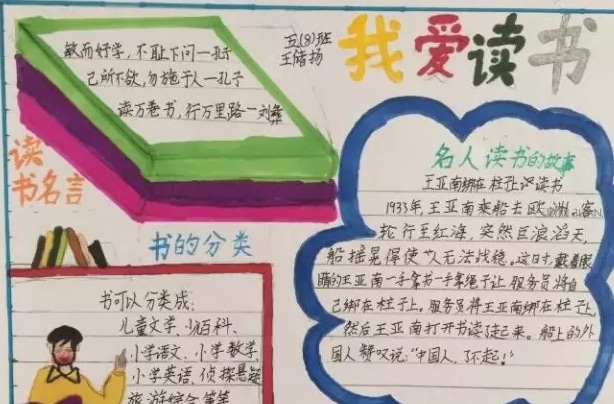 我爱读书
五(8)班
王储扬
敏而好学，不耻下问一孔子
己所不欲，勿施于人一孔子
读万卷书，行万里路一刘彝
读
书名言
名人读书的故事
王亚南绑在柱子上读书
1933年，王亚南乘船去欧洲，客
轮行至红海，突然巨浪滔天，
船摇晃得使人无法战稳。这时，戴着眼
睛的王亚南一手拿书一手拿绳子让服务员将自
己绑在柱子上。服务员将王亚南绑在柱子上，
然后王亚南打开书读了起来。船上的外
国人赞叹说："中国人，了不起！"
书的分类
书可以分类成：
儿童文学、少儿百科、
小学语文、小学数学、
小学英语、侦探悬疑
旅游综合等等